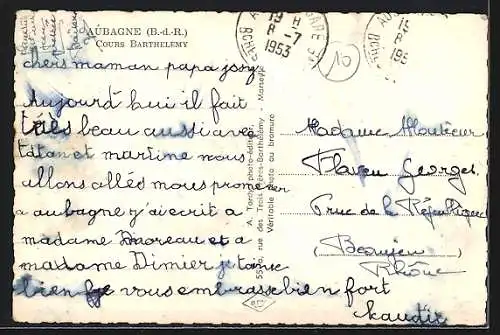 AUBAGNE (B.-d.-R.)
COURS BARTHELEMY
19 H
8 - 7
1953
chers maman papa josy
Aujourd'hui il fait
très beau aussi avec
tatan et martine nous
allons allés nous promener
a aubagne j'ai ecrit a
madame Moreau et a
madame Dimier je t'aime
bien je vous embrasse bien fort
Claudie
A. Tardy, photo-éditeur
55, rue des Trois-Frères-Barthélemy - Marseille
Véritable photo au bromure
Madame Monsieur
Georges
1 rue de la République
(Beaujeu)
Rhône